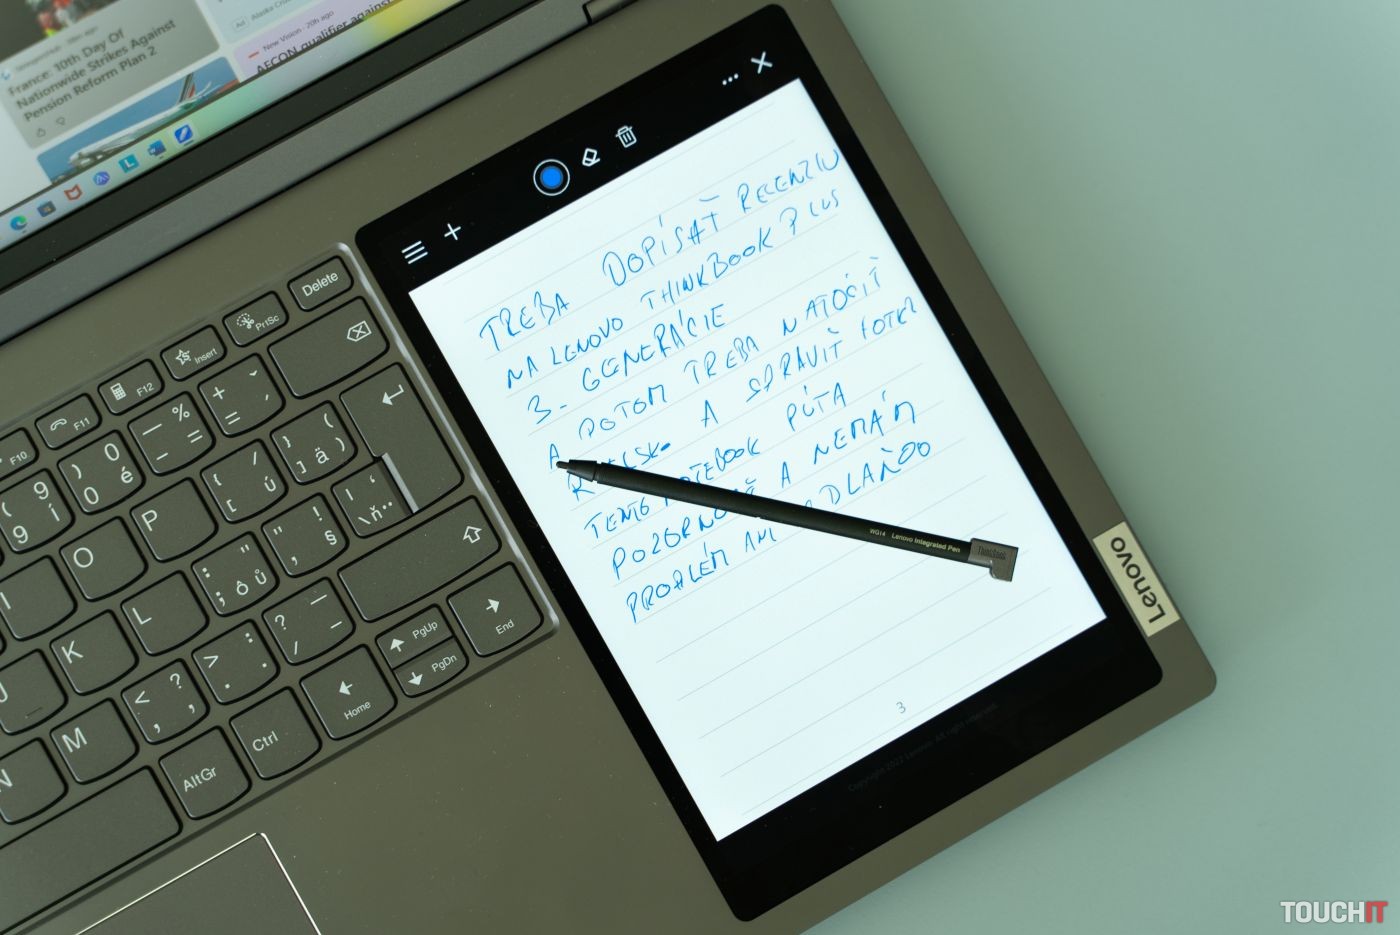 France: 10th Day Of
Nationwide Strikes Against
Pension Reform Plan 2
Ad
New Vision · 20h ago
AFCON qualifier against
TREBA DOPÍSAŤ RECENZIU
NA LENOVO THINKBOOK PLUS
3. GENERÁCIE
A POTOM TREBA NATOČIŤ
A SPRAVIŤ FOTKY
TENTO NOTEBOOK PÚTA
A NEMÁM
PROBLÉM ANI DLAŇOU
WG14 Lenovo Integrated Pen
ThinkBook
3
Copyright 2022 Lenovo. All right reserved.
Lenovo
Delete
PrtSc
Insert
F12
F11
F10
+ ˇ
= ´
% 
— =
-
) 0
0 é
( 9
9 Í
} (
] ä )
{ /
[ ú
P
O
I
| '
\ ň ¨
" !
, §
: "
; ô ů
L
K
J
? _
/ -
> :
. .
< ?
, ,
M
N
PgUp
PgDn
End
Home
Ctrl
AltGr
TOUCHIT